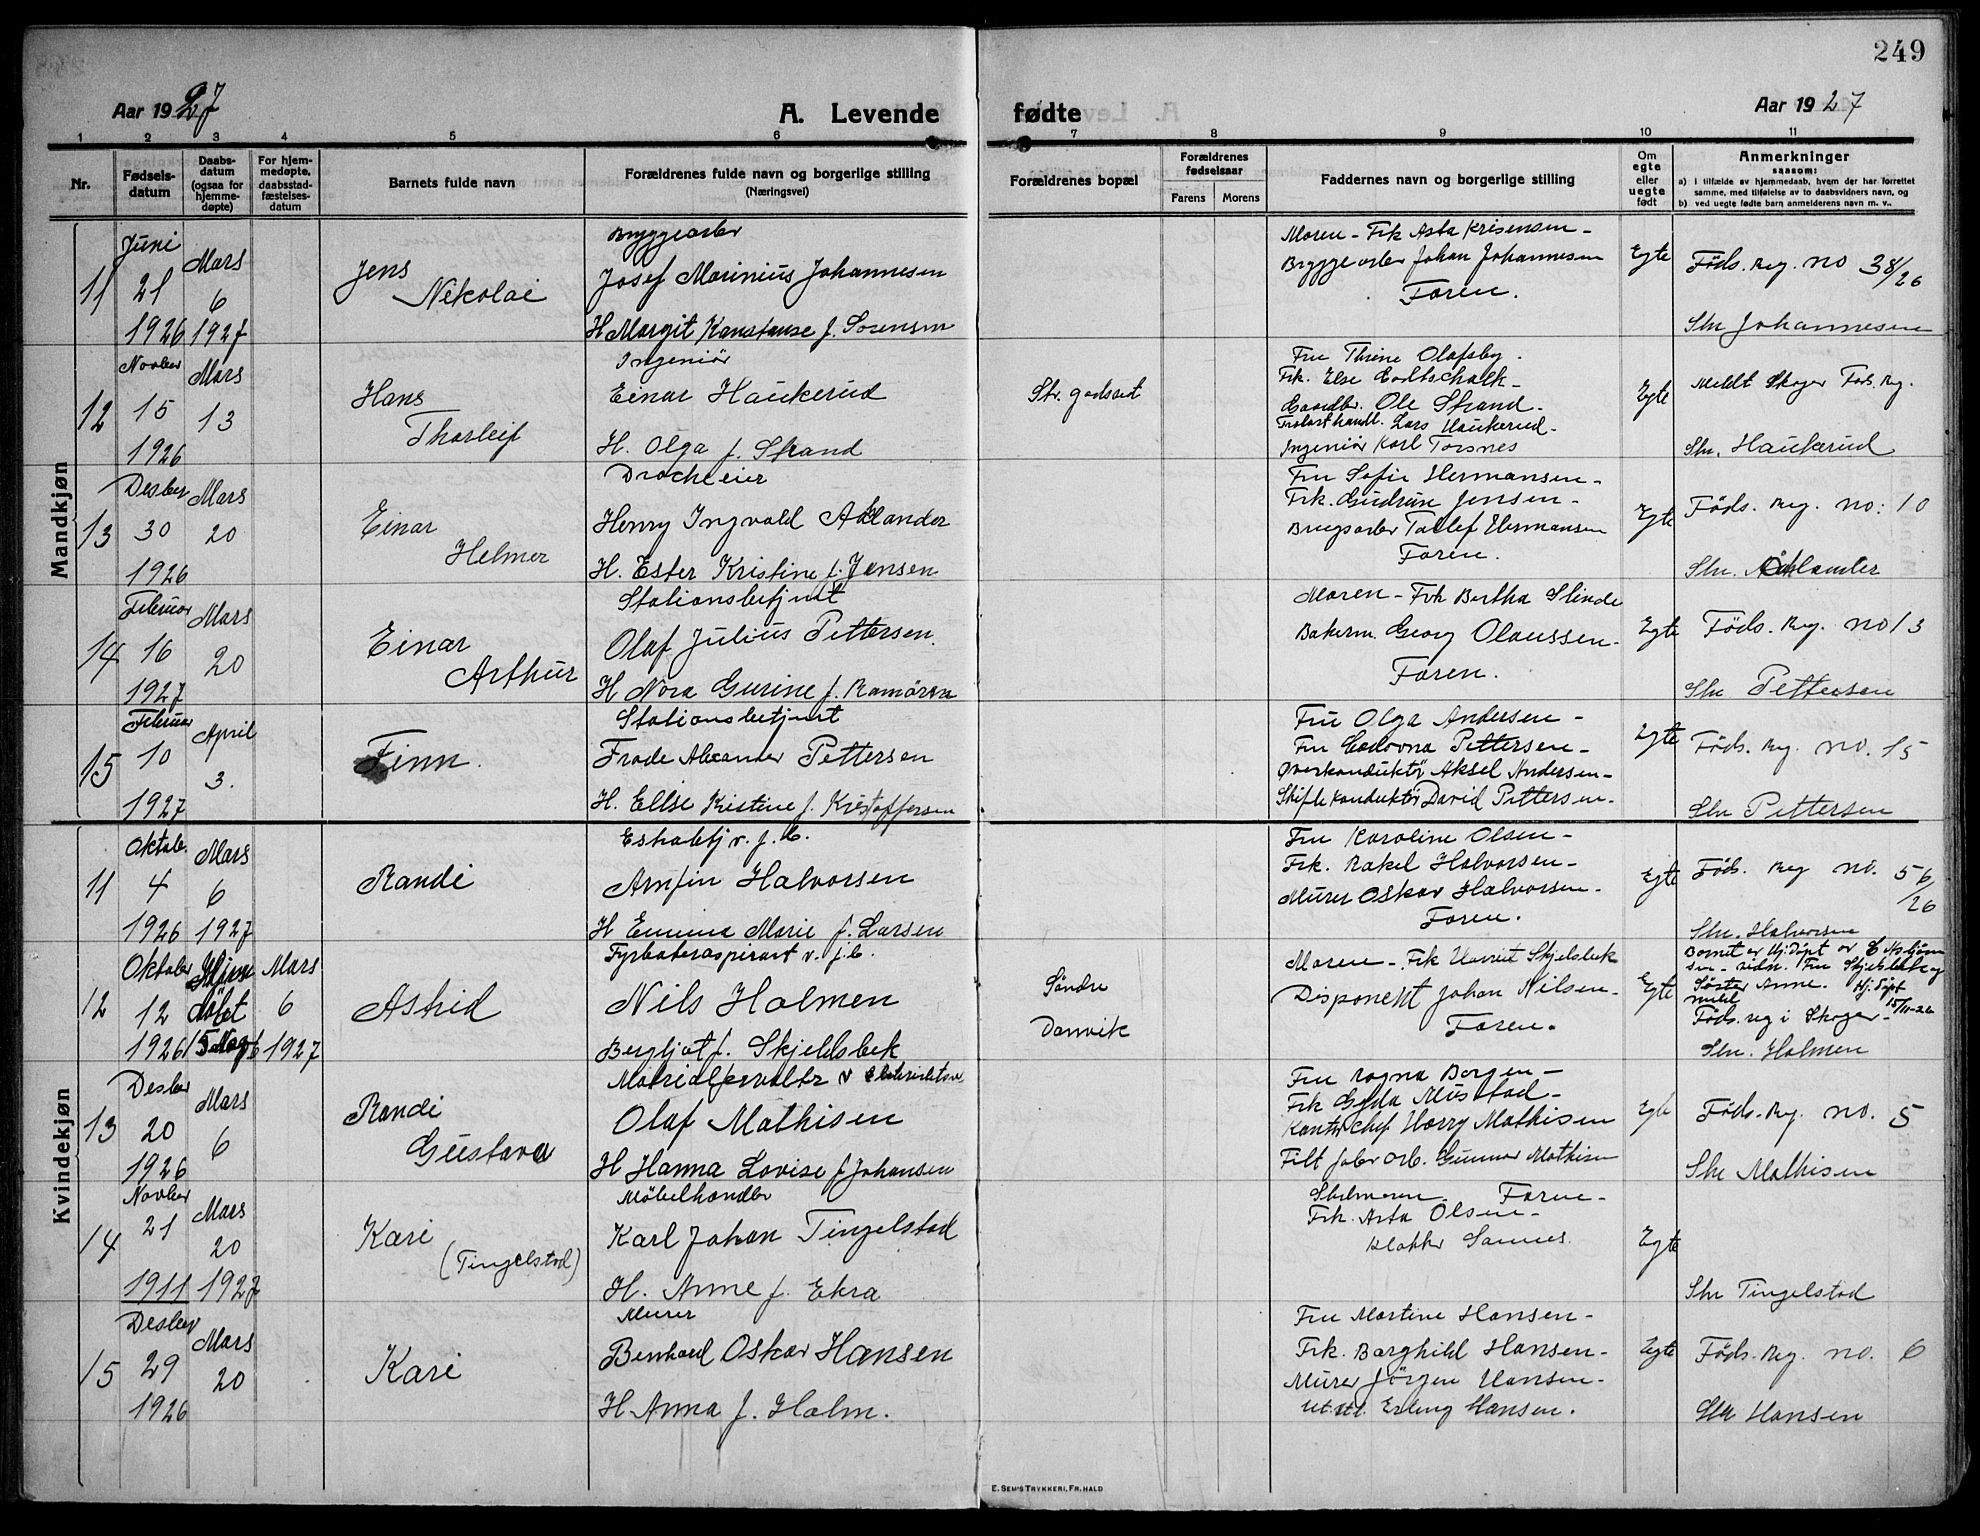 249
Aar 1927
A. Levende
fødte
Aar 1927
1 2 3 4 5 6 7 8 9 10 11
Nr.
Fødsels-
datum
Daabs-
datum
(ogsaa for
hjemme-
døpte)
For hjem-
medøpte,
daabsstad-
fæstelses-
datum
Barnets fulde navn
Forældrenes fulde navn og borgerlige stilling
(Næringsvei)
Forældrenes bopæl
Forældrenes
fødselsaar
Farens
Morens
Faddernes navn og borgerlige stilling
Om
egte
eller
uegte
født
Anmerkninger
saasom:
a) i tilfælde av hjemmedaab, hvem der har forrettet
samme, med tilføielse av to daabsvidners navn, og
b) ved uegte fødte barn anmelderens navn m. v..
Mandkjøn
11
Juni
21
1926
Mars
6
1927
Jens
Nikolai
Bryggearb
Josef Marinius Johannesen
H Margit Konstanse f. Sørensen
Moren - Frk Asta Krisensen -
Bryggearb Johan Johannesen
Faren.
Egte
Føds. Reg. no 38/26
Johannesen
12
Novber
15
1926
Mars
13
Hans
Thorleif
Ingeniør
Einar Haukerud
H. Olga f. Strand
Str. godset
Fru Thrine Olafsby.
Frk. Else Godtschalk -
Gaardbr. Ole Strand -
Lars Haukerud -
Ingeniør Karl Torsnes
Egte
Meldt Skoger Føds. Reg.
Haukerud
13
Desber
30
1926
Mars
20
Einar
Helmer
Drocheeier
Henry Ingvald Adlander
H. Ester Kristine f. Jensen
Fru Sofie Hermansen -
Frk. Gudrun Jensen -
Brugsarb Tollef Hermansen
Faren.
Egte
Føds. Reg. no: 10
14
Februar
16
1927
Mars
20
Einar
Arthur
Stationsbetjnt
Olaf Julius Pettersen
H Nora Gurine f.
Moren - Frk Bertha Slinde
Bakerm. Georg Olaussen -
Faren.
Egte
Føds. Reg. no 13
Pettersen
15
Februar
10
1927
April
3.
Finn.
Stationsbetjnt
Frode Alexander Pettersen
H. Ellse Kristine f. Kristoffersen
Fru Olga Andersen -
Fru Lovovna Pettersen -
Overkonduktør Aksel Andersen -
Skiftekonduktør David Pettersen -
Egte
Føds. Reg. no. 15
Pettersen
Kvindekjøn
11
Oktob.
4
1926
Mars
6
1927
Randi
v. j. b.
Arnfin Halvorsen
H Emma Marie f. Larsen
Fru Karoline Olsen -
Frk. Rakel Halvorsen -
Murer Oskar Halvorsen -
Faren.
Egte
Føds. Reg no. 56/26
Halvorsen
12
Oktober
12
1926
Hjem
døbt
Mars
6
1927
Astrid
Fyrbøteraspirant v. j.b.
Nils Holmen
Bergljot f. Skjeldsbek
Søndre
Danvik
Moren - Frk Harriet Skjelsbek
Disponent Johan Nilsen -
Faren -
Egte
Barnet er Hj.døpt av
Fru Skjelsbek og
Søster Anne. Hj. døpt
15/11-26
Føds. reg i Skoger -
Holmen
13
Desber
20
1926
Mars
6
Randi
Gustava
Olaf Mathisen
H Hanna Lovise f Johansen
Fru Ragna Borgen -
Frk Gyda Mustad -
Kontorchef Harry Mathisen
Filt fabr arb. Gunnar Mathisen
Egte
Føds. Reg. no. 5
Mathisen
14
Novber
21
1911
Mars
20
1927
Kari
(Tingelstad)
Møbelhandler
Karl Johan Tingelstad
H. Anne f. Ekra
Stedmoren - Faren -
Frk. Asta Olsen -
Klokker Sannes.
Egte
Tingelstad
15
Desber
29
1926
Mars
20
Kari
Murer
Bernhard Oskar Hansen
H. Anna f. Holm.
Fru Martine Hansen -
Frk. Borghild Hansen -
Murer Jørgen Hansen -
Erling Hansen.
Egte
Føds. Reg. no. 6
Hansen
E. SEM'S TRYKKERI, FR. HALD